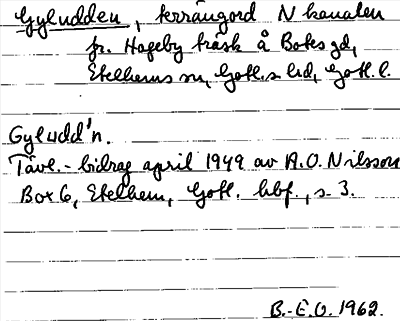 Gyludden, terrängord N kanalen
fr. Hageby träsk å Botes gd,
Etelhems sn, Gotl. s hd, Gotl. l.
Gyludd'n.
Tävl.-bidrag april 1949 av A.O. Nilsson
Box 6, Etelhem, Gotl. hbf., s. 3.
B.-E.O. 1962.